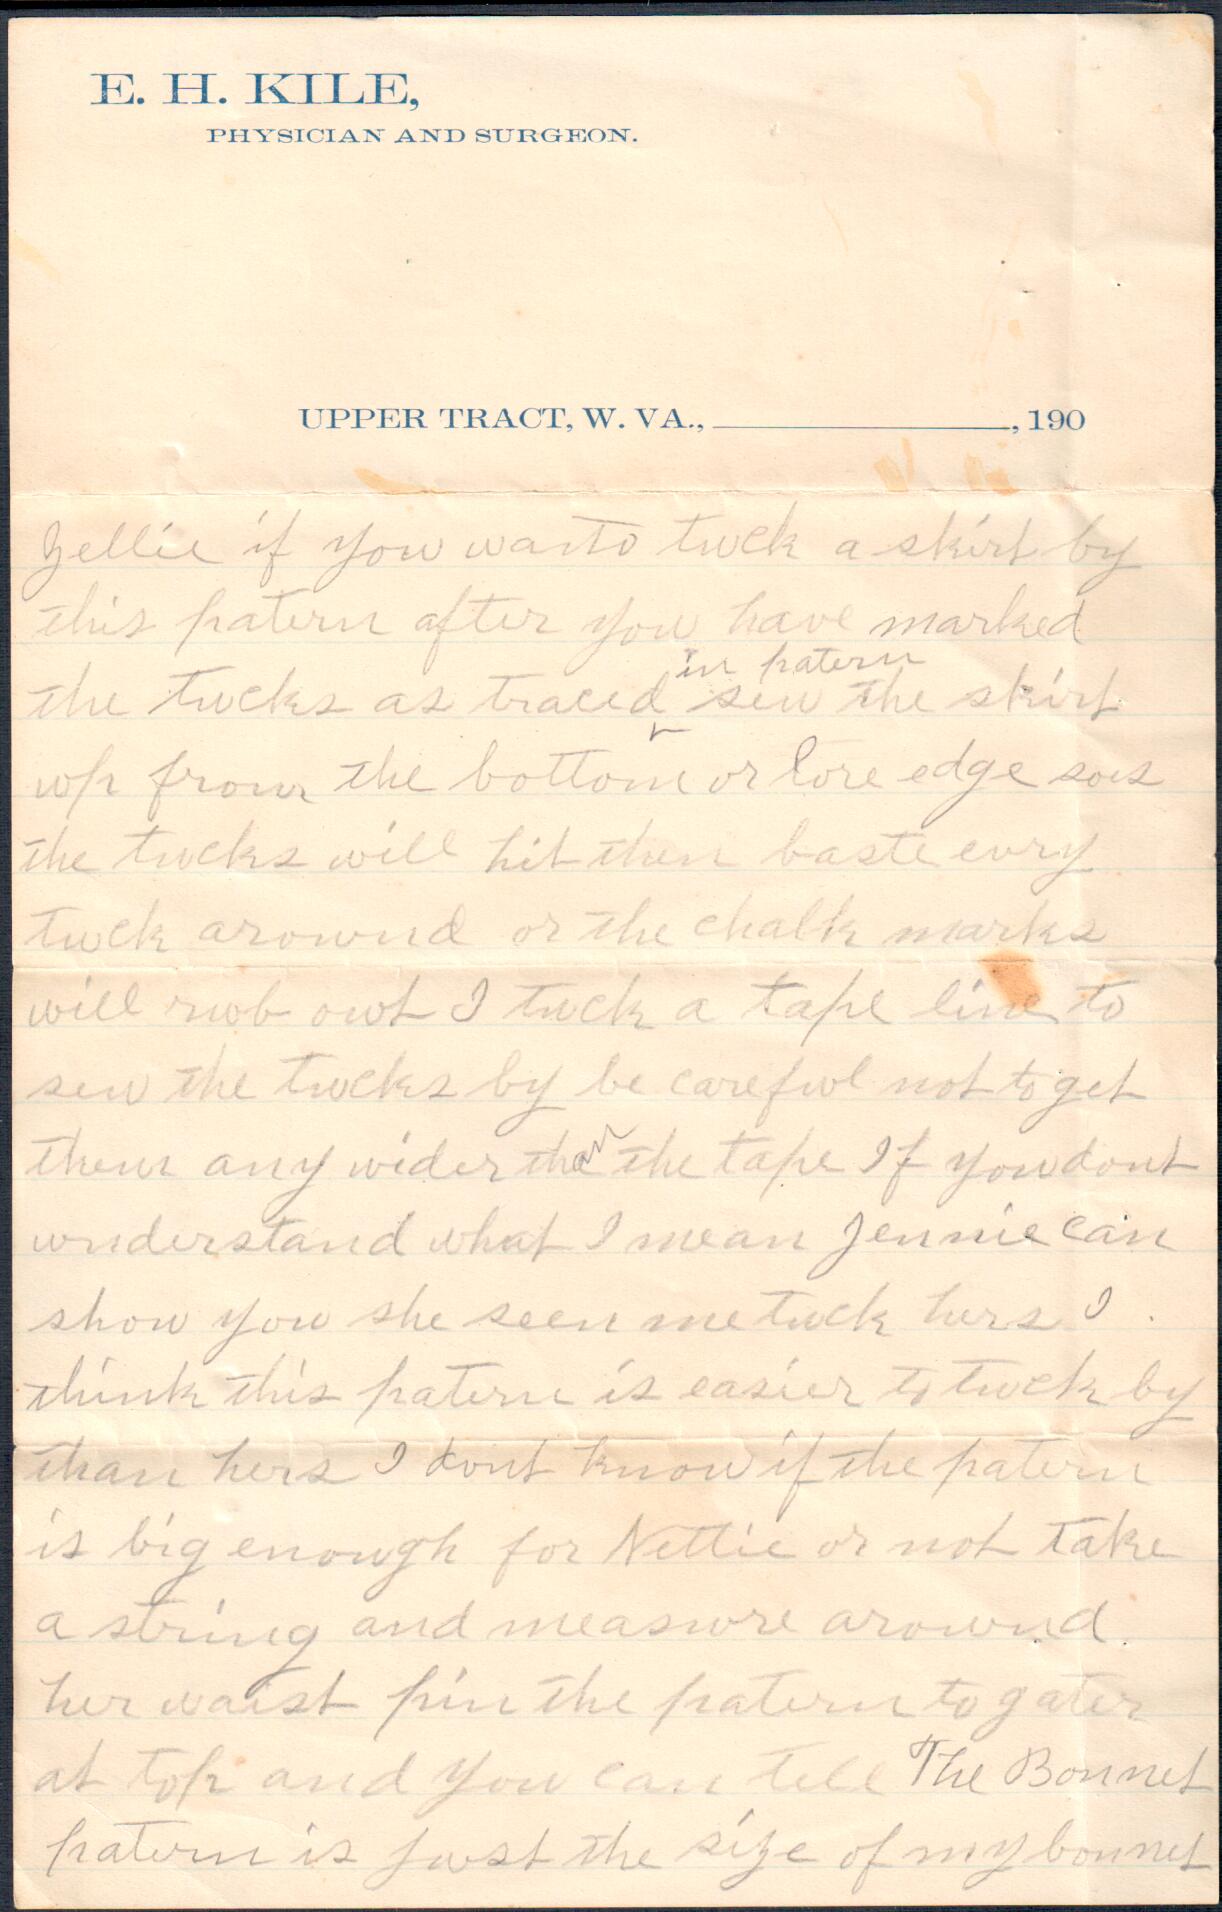 E. H. KILE,
PHYSICIAN AND SURGEON.
UPPER TRACT, W. VA., , 190
Zellie if you wanto tuck a skirt by
this patern after you have marked
in patern
the tucks as traced sew the skirt
up from the bottom or lore edge sois
the tucks will hit then baste evry
tuck around or the chalk marks
will rub out I tuck a tape line to
sew the tucks by be careful not to get
them any wider than the tape If you dont
understand what I mean Jennie can
show you she seen me tuck hers I
think this patern is easier to tuck by
than hers I dont know if the patern
is big enough for Nettie or not take
a string and measure around
her waist pin the patern to gater
at top and you can tell The Bonnet
patern is just the size of my bonnet